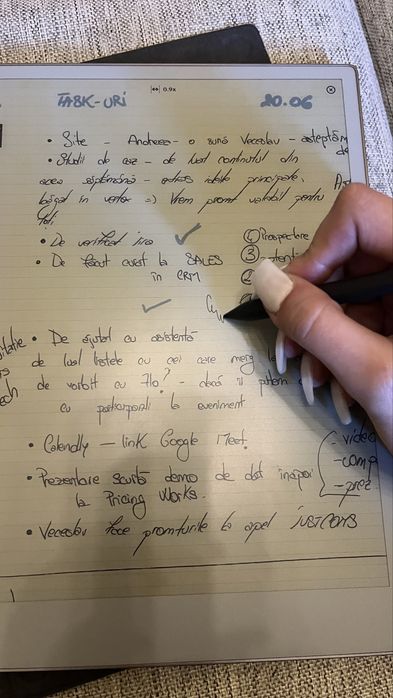 0.9x
TASK-URI 20.06
• Site - Andreea - o sună Veceslav - așteptăm
• Studii de caz - de luat conținutul din de
săptămână - extras ideile principale,
băgat în vector => Vrem promt variabil pentru
toți
• De verificat jira ✓ ① Prospectare
• De făcut curat la SALES ③
în CRM ②
✓
• De ajutat cu asistentă
de luat listele cu cei care merg la
de vorbit cu Flo? - dacă îl putem
cu la eveniment
• Calendly - link Google Meet.
- video
• Prezentare scurtă demo de dat înapoi - comp
la Pricing Works. - prez
• Veceslav face prompturile la apel JUSTCONS